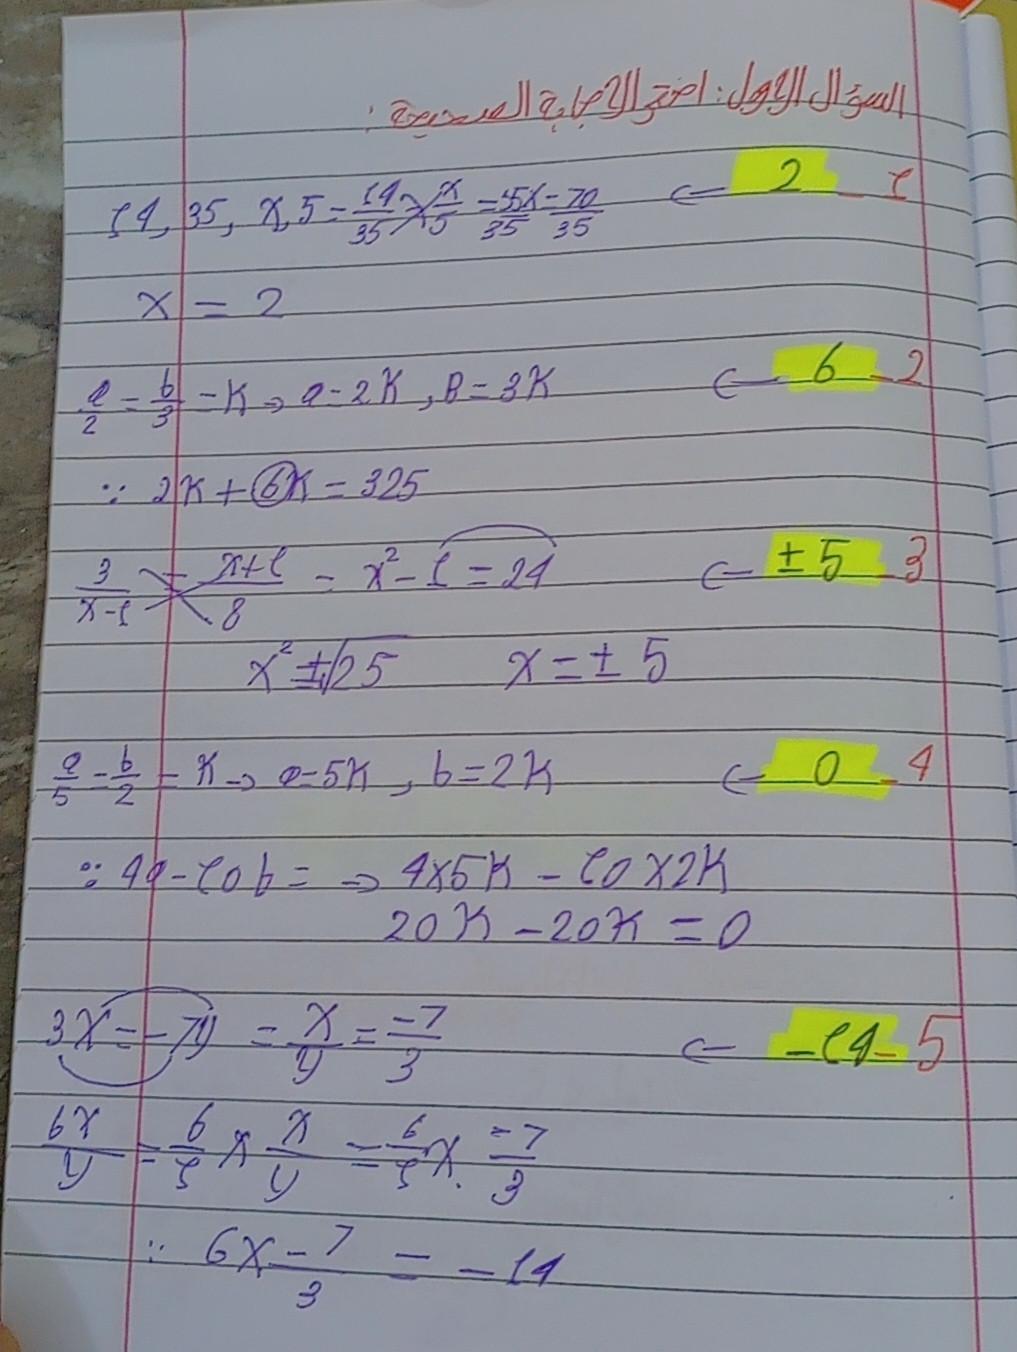 السؤال الأول: اختر الإجابة الصحيحة:
1 - 2 ← 14, 35, x, 5 = 14/35 × x/5 = 35x/35 = 70/35
x = 2
2 - 6 ← a/2 = b/3 = K → a = 2K, B = 3K
∵ 2K + 6K = 325
3 - ±5 ← 3/x-1 = x+1/8 = x² - 1 = 24
x² ±√25 x = ± 5
4 - 0 ← a/5 = b/2 = K → a = 5K, b = 2K
∵ 4a - 10b = → 4×5K - 10×2K
20K - 20K = 0
5 - -14 ← 3x = -7y = x/y = -7/3
6x/y = 6/1 × x/y = 6/1 × -7/3
∵ 6x-7/3 = -14